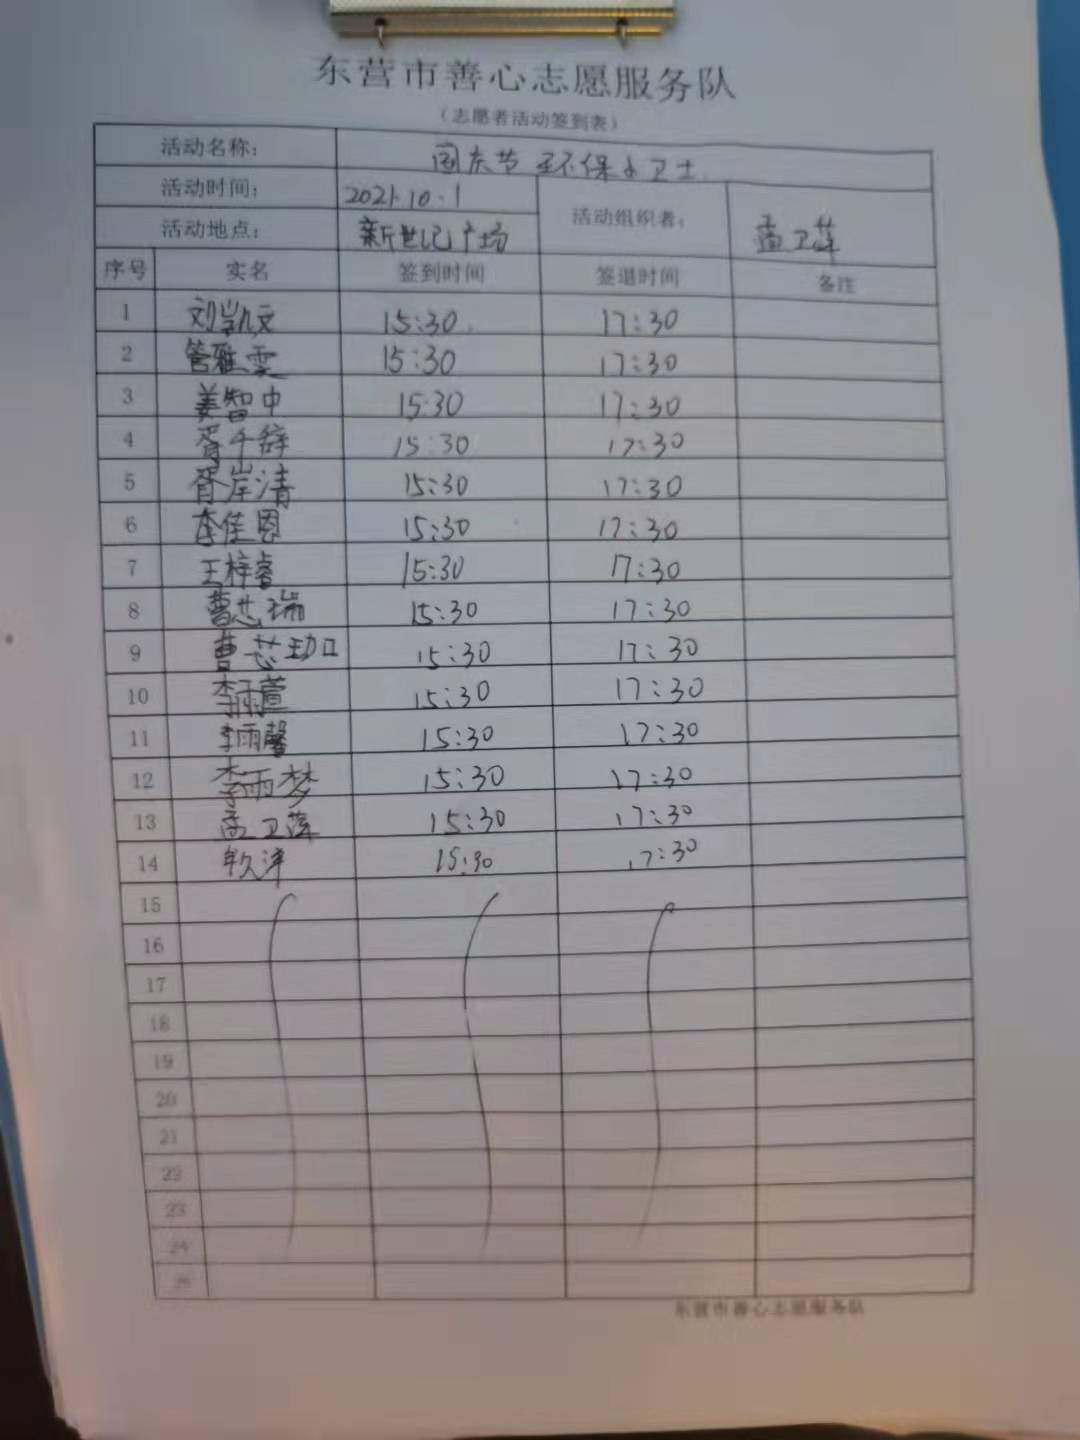 东营市善心志愿服务队
（志愿者活动签到表）
活动名称： 国庆节 环保小卫士
活动时间： 2021.10.1 活动组织者： 孟卫萍
活动地点： 新世纪广场
序号 实名 签到时间 签退时间 备注
1 刘凯文 15:30 17:30
2 管雅雯 15:30 17:30
3 姜智中 15:30 17:30
4 胥千辞 15:30 17:30
5 胥岸清 15:30 17:30
6 李佳恩 15:30 17:30
7 王梓睿 15:30 17:30
8 曹芯瑞 15:30 17:30
9 曹芯珈 15:30 17:30
10 李雨萱 15:30 17:30
11 李雨馨 15:30 17:30
12 李雨梦 15:30 17:30
13 孟卫萍 15:30 17:30
14 15:30 17:30
15
16
17
18
19
20
21
22
23
24
25
东营市善心志愿服务队